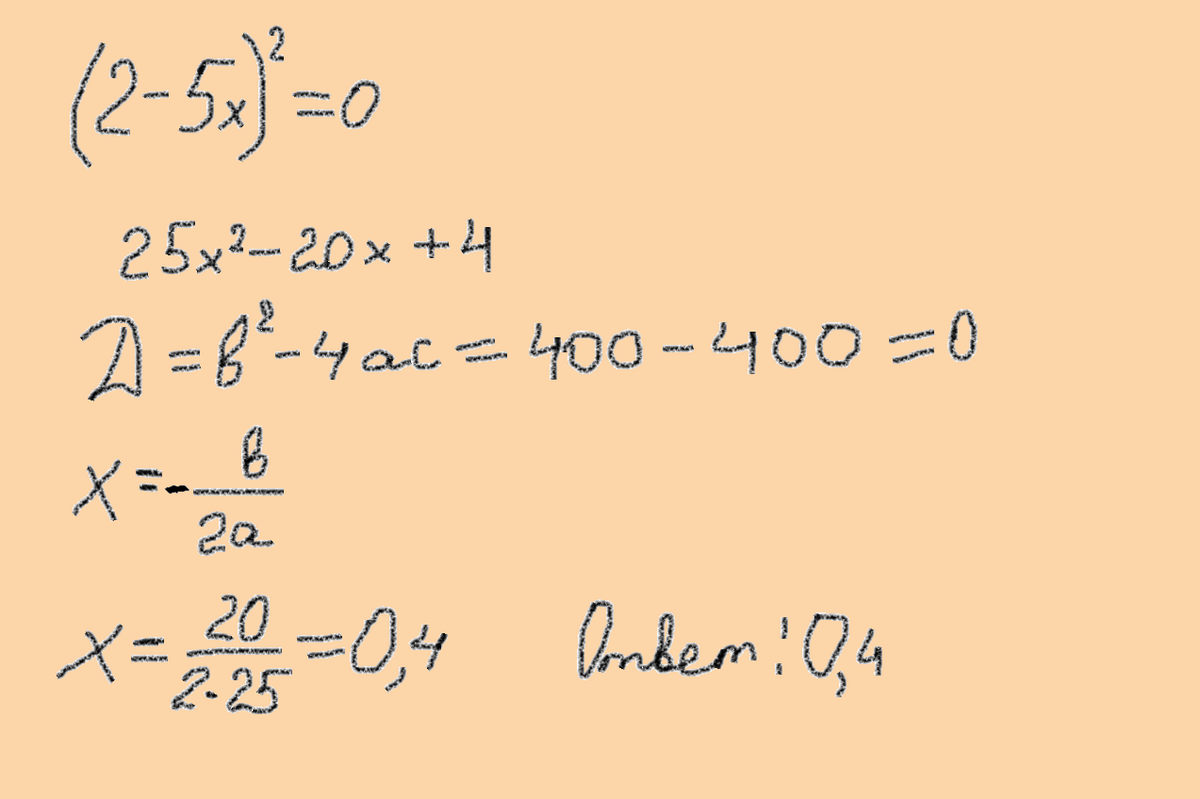 (2-5x)²=0
25x²-20x+4
D=b²-4ac=400-400=0
x=-b/2a
x=20/2·25=0,4 Ответ: 0,4